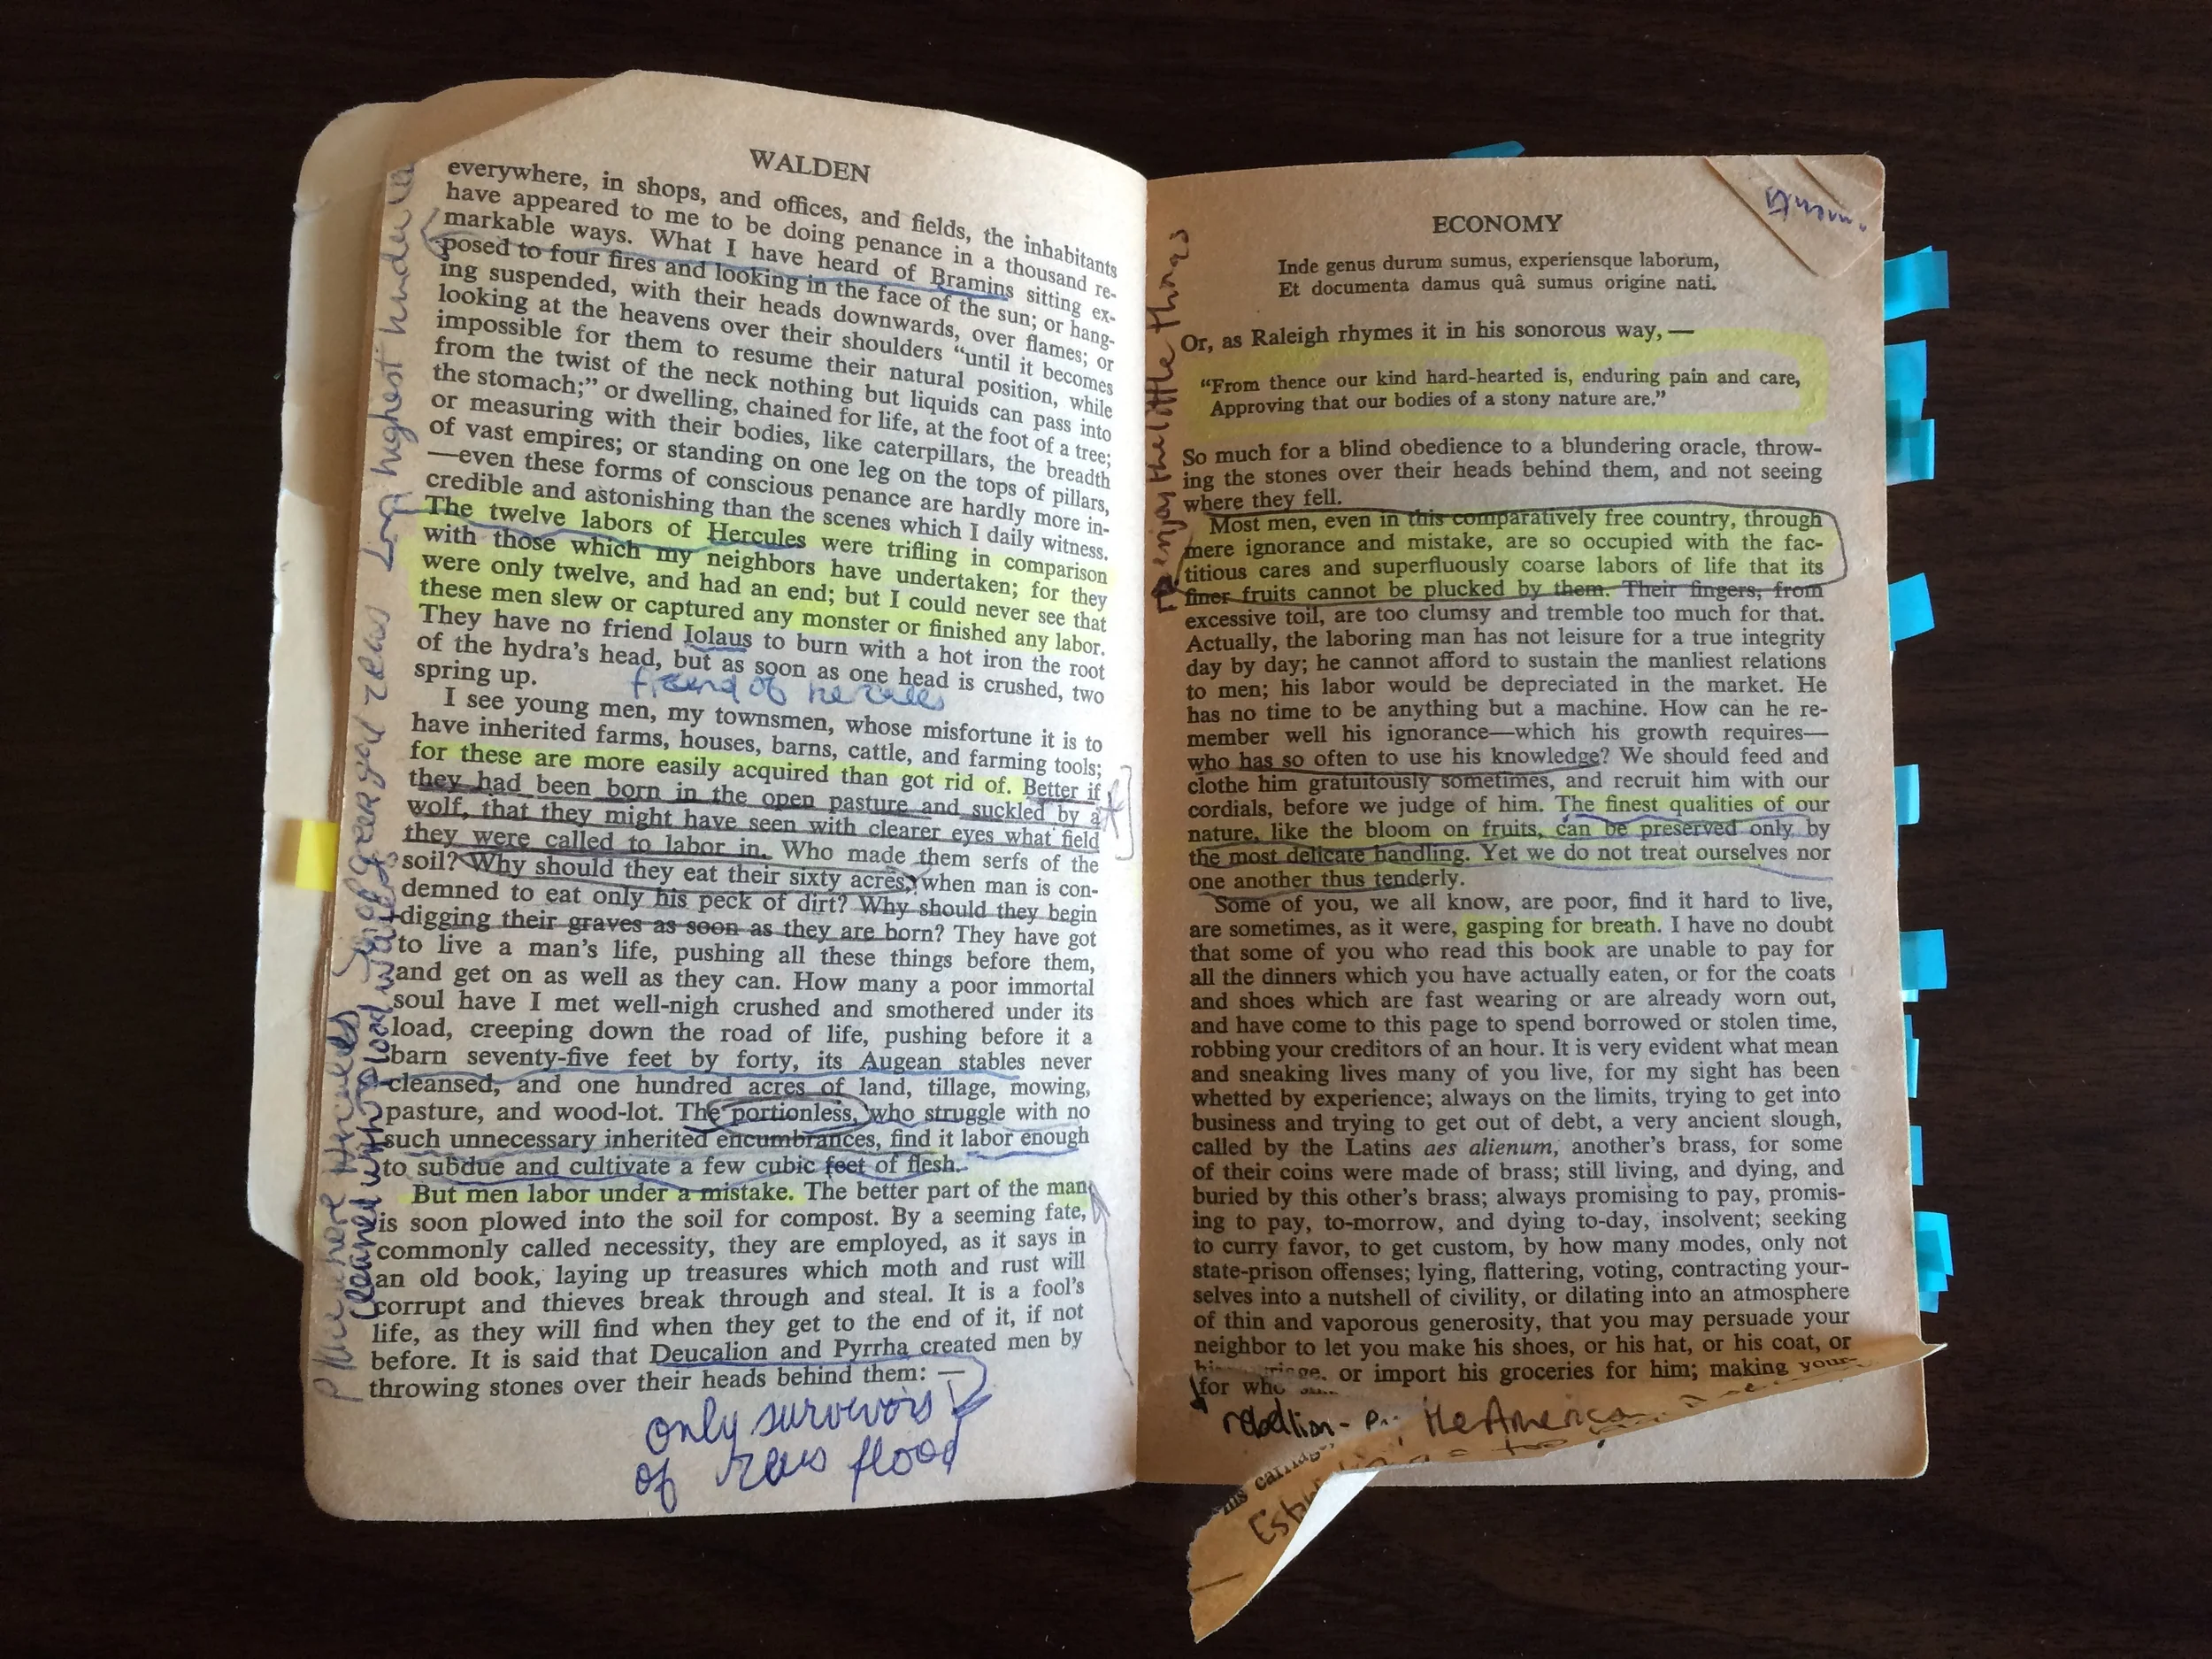 WALDEN
everywhere, in shops, and offices, and fields, the inhabitants
have appeared to me to be doing penance in a thousand re-
markable ways. What I have heard of Bramins sitting ex-
posed to four fires and looking in the face of the sun; or hang-
ing suspended, with their heads downwards, over flames; or
looking at the heavens over their shoulders "until it becomes
impossible for them to resume their natural position, while
from the twist of the neck nothing but liquids can pass into
the stomach;" or dwelling, chained for life, at the foot of a tree;
or measuring with their bodies, like caterpillars, the breadth
of vast empires; or standing on one leg on the tops of pillars,
—even these forms of conscious penance are hardly more in-
credible and astonishing than the scenes which I daily witness.
The twelve labors of Hercules were trifling in comparison
with those which my neighbors have undertaken; for they
were only twelve, and had an end; but I could never see that
these men slew or captured any monster or finished any labor.
They have no friend Iolaus to burn with a hot iron the root
of the hydra's head, but as soon as one head is crushed, two
spring up.
friend of hercules
I see young men, my townsmen, whose misfortune it is to
have inherited farms, houses, barns, cattle, and farming tools;
for these are more easily acquired than got rid of. Better if
they had been born in the open pasture and suckled by a
wolf, that they might have seen with clearer eyes what field
they were called to labor in. Who made them serfs of the
soil? Why should they eat their sixty acres, when man is con-
demned to eat only his peck of dirt? Why should they begin
digging their graves as soon as they are born? They have got
to live a man's life, pushing all these things before them,
and get on as well as they can. How many a poor immortal
soul have I met well-nigh crushed and smothered under its
load, creeping down the road of life, pushing before it a
barn seventy-five feet by forty, its Augean stables never
cleansed, and one hundred acres of land, tillage, mowing,
pasture, and wood-lot. The portionless, who struggle with no
such unnecessary inherited encumbrances, find it labor enough
to subdue and cultivate a few cubic feet of flesh.
But men labor under a mistake. The better part of the man
is soon plowed into the soil for compost. By a seeming fate,
commonly called necessity, they are employed, as it says in
an old book, laying up treasures which moth and rust will
corrupt and thieves break through and steal. It is a fool's
life, as they will find when they get to the end of it, if not
before. It is said that Deucalion and Pyrrha created men by
throwing stones over their heads behind them: —
only survivors
of zeus flood
highest hindu
son of zeus
place where Hercules
cleaned with load
ECONOMY
Inde genus durum sumus, experiensque laborum,
Et documenta damus quâ sumus origine nati.
Or, as Raleigh rhymes it in his sonorous way, —
"From thence our kind hard-hearted is, enduring pain and care,
Approving that our bodies of a stony nature are."
So much for a blind obedience to a blundering oracle, throw-
ing the stones over their heads behind them, and not seeing
where they fell.
Most men, even in this comparatively free country, through
mere ignorance and mistake, are so occupied with the fac-
titious cares and superfluously coarse labors of life that its
finer fruits cannot be plucked by them. Their fingers, from
excessive toil, are too clumsy and tremble too much for that.
Actually, the laboring man has not leisure for a true integrity
day by day; he cannot afford to sustain the manliest relations
to men; his labor would be depreciated in the market. He
has no time to be anything but a machine. How can he re-
member well his ignorance—which his growth requires—
who has so often to use his knowledge? We should feed and
clothe him gratuitously sometimes, and recruit him with our
cordials, before we judge of him. The finest qualities of our
nature, like the bloom on fruits, can be preserved only by
the most delicate handling. Yet we do not treat ourselves nor
one another thus tenderly.
Some of you, we all know, are poor, find it hard to live,
are sometimes, as it were, gasping for breath. I have no doubt
that some of you who read this book are unable to pay for
all the dinners which you have actually eaten, or for the coats
and shoes which are fast wearing or are already worn out,
and have come to this page to spend borrowed or stolen time,
robbing your creditors of an hour. It is very evident what mean
and sneaking lives many of you live, for my sight has been
whetted by experience; always on the limits, trying to get into
business and trying to get out of debt, a very ancient slough,
called by the Latins aes alienum, another's brass, for some
of their coins were made of brass; still living, and dying, and
buried by this other's brass; always promising to pay, promis-
ing to pay, to-morrow, and dying to-day, insolvent; seeking
to curry favor, to get custom, by how many modes, only not
state-prison offenses; lying, flattering, voting, contracting your-
selves into a nutshell of civility, or dilating into an atmosphere
of thin and vaporous generosity, that you may persuade your
neighbor to let you make his shoes, or his hat, or his coat, or
or import his groceries for him; making your-
for
rebellion - the America
enjoy the little things
his carriage